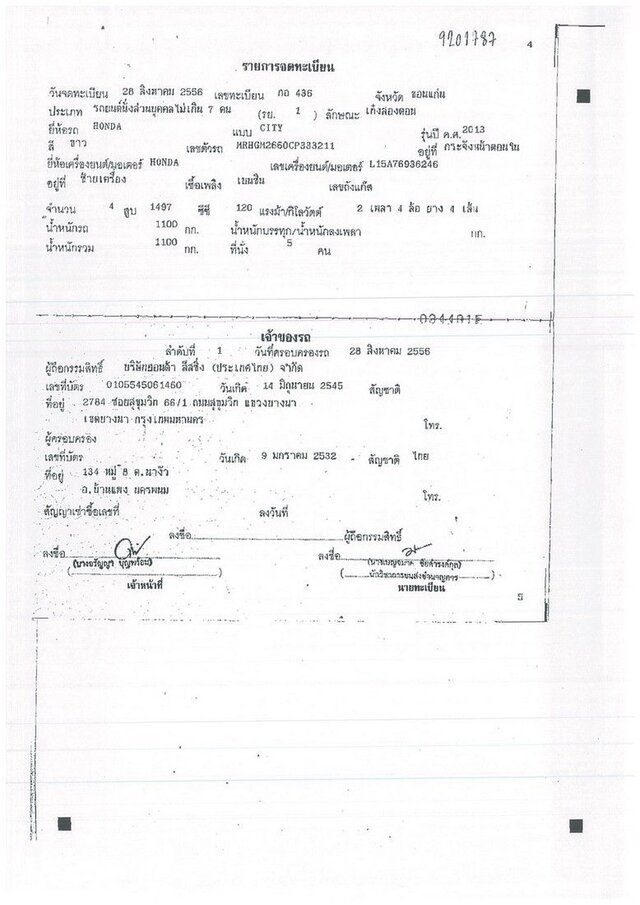 9201787
4
รายการจดทะเบียน
วันจดทะเบียน 28 สิงหาคม 2556 เลขทะเบียน กอ 436 จังหวัด ขอนแก่น
ประเภท รถยนต์นั่งส่วนบุคคลไม่เกิน 7 คน (รย. 1 ) ลักษณะ เก๋งสองตอน
ยี่ห้อรถ HONDA แบบ CITY รุ่นปี ค.ศ. 2013
สี ขาว เลขตัวรถ MRHGM2660CP333211 อยู่ที่ กระจังหน้าตอนใน
ยี่ห้อเครื่องยนต์/มอเตอร์ HONDA เลขเครื่องยนต์/มอเตอร์ L15A76936246
อยู่ที่ ซ้ายเครื่อง เชื้อเพลิง เบนซิน เลขถังแก๊ส
จำนวน 4 สูบ 1497 ซีซี 120 แรงม้า/กิโลวัตต์ 2 เพลา 4 ล้อ ยาง 4 เส้น
น้ำหนักรถ 1100 กก. น้ำหนักบรรทุก/น้ำหนักลงเพลา กก.
น้ำหนักรวม 1100 กก. ที่นั่ง 5 คน
เจ้าของรถ
ลำดับที่ 1 วันที่ครอบครองรถ 28 สิงหาคม 2556
ผู้ถือกรรมสิทธิ์ บริษัทฮอนด้า ลีสซิ่ง (ประเทศไทย) จำกัด
เลขที่บัตร 0105545061460 วันเกิด 14 มิถุนายน 2545 สัญชาติ
ที่อยู่ 2784 ซอยสุขุมวิท 66/1 ถนนสุขุมวิท แขวงบางนา
เขตบางนา กรุงเทพมหานคร โทร.
ผู้ครอบครอง
เลขที่บัตร วันเกิด 9 มกราคม 2532 สัญชาติ ไทย
ที่อยู่ 134 หมู่ 8 ต.นางัว
อ.บ้านแพง นครพนม โทร.
สัญญาเช่าซื้อเลขที่ ลงวันที่
ลงชื่อ ผู้ถือกรรมสิทธิ์
ลงชื่อ ลงชื่อ
เจ้าหน้าที่ นักวิชาการขนส่งชำนาญการ
นายทะเบียน
5